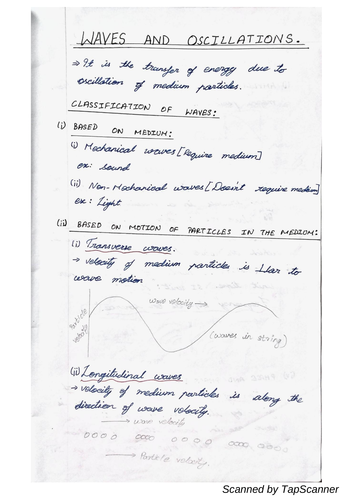 WAVES AND OSCILLATIONS.
⇒ It is the transfer of energy due to
oscillation of medium particles.
CLASSIFICATION OF WAVES:
(i) BASED ON MEDIUM:
(i) Mechanical waves [Require medium]
ex: sound
(ii) Non-Mechanical waves [Doesn't require medium]
ex: Light
(ii) BASED ON MOTION OF PARTICLES IN THE MEDIUM:
(i) Transverse waves.
→ velocity of medium particles is ⊥lar to
wave motion
wave velocity →
Particle
velocity
(waves in string)
(ii) Longitudinal waves
→ velocity of medium particles is along the
direction of wave velocity.
→ wave velocity
→ Particle velocity.
Scanned by TapScanner